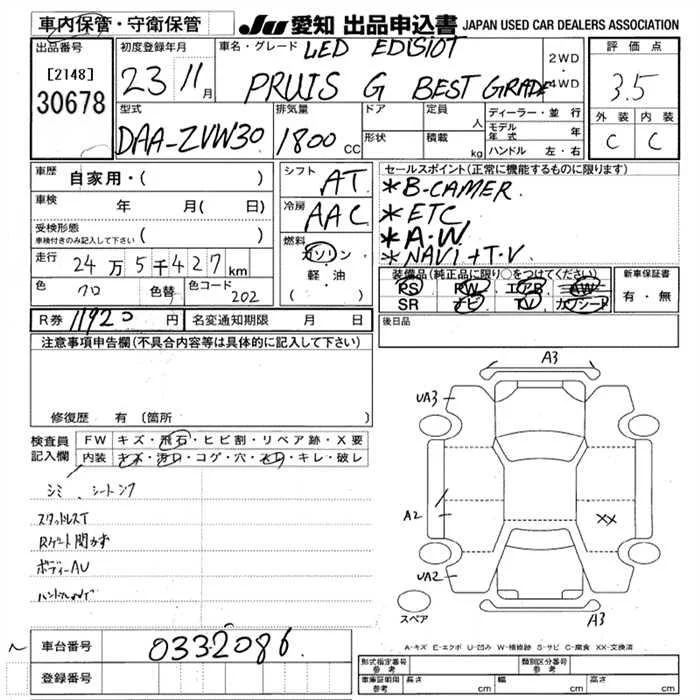 車内保管・守衛保管
JU 愛知 出品申込書 JAPAN USED CAR DEALERS ASSOCIATION
出品番号
[2148]
30678
初度登録年月
23 11月
車名・グレード
LED EDISIOT
PRUIS G BEST GRADE
2WD
・
4WD
評価点
3.5
外装 内装
C C
型式
DAA-ZVW30
排気量
1800 CC
ドア
形状
定員 人
積載 kg
ディーラー・並行
モデル年式 年
ハンドル 左・右
車歴 自家用・( )
車検 年 月( 日)
受検形態
車検付きのみ記入して下さい ( )
走行 24万5千427km
色 クロ 色替 色コード 202
シフト AT
冷房 AAC
燃料
ガソリン・
軽・油
( )
セールスポイント(正常に機能するものに限ります)
*B-CAMER.
*ETC
*A.W.
*NAVI+T.V
装備品(純正品に限り○をつけてください)
PS PW エアB AW
SR ナビ TV カワシート
新車保証書
有・無
R券 11920 円
名変通知期限 月 日
後日品
注意事項申告欄(不具合内容等は具体的に記入して下さい)
修復歴 有〔箇所 〕
検査員記入欄
FW キズ・飛石・ヒビ割・リペア跡・X要
内装 キズ・汚れ・コゲ・穴・スレ・キレ・破レ
シミ シートスレ
スタッドレスT
Rゲート開かず
ボディーAU
A3
UA3
A2
XX
UA2
A3
スペア
A-キズ E-エクボ U-凹み W-補修跡 S-サビ C-腐食 XX-交換済
車台番号 0332086
登録番号
型式指定番号 参考
類別区分番号 参考
車庫証明用 参考 長さ cm 幅 cm 高さ cm